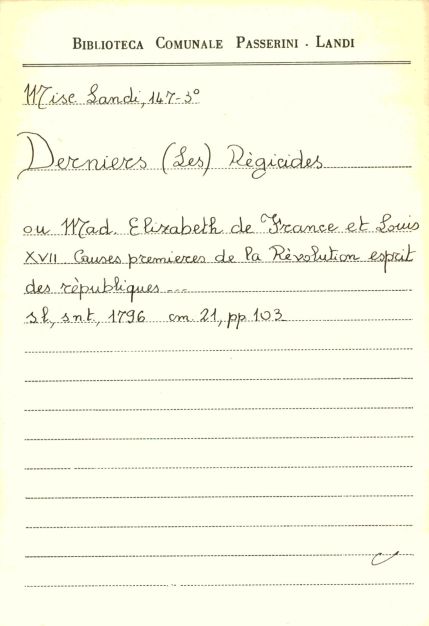 BIBLIOTECA COMUNALE PASSERINI - LANDI
Misc Landi, 147-3°
Derniers (Les) Règicides
ou Mad. Elizabeth de France et Louis
XVII. Causes premieres de la Rèvolution esprit
des rèpubliques ...
sl, snt, 1796 cm 21, pp 103